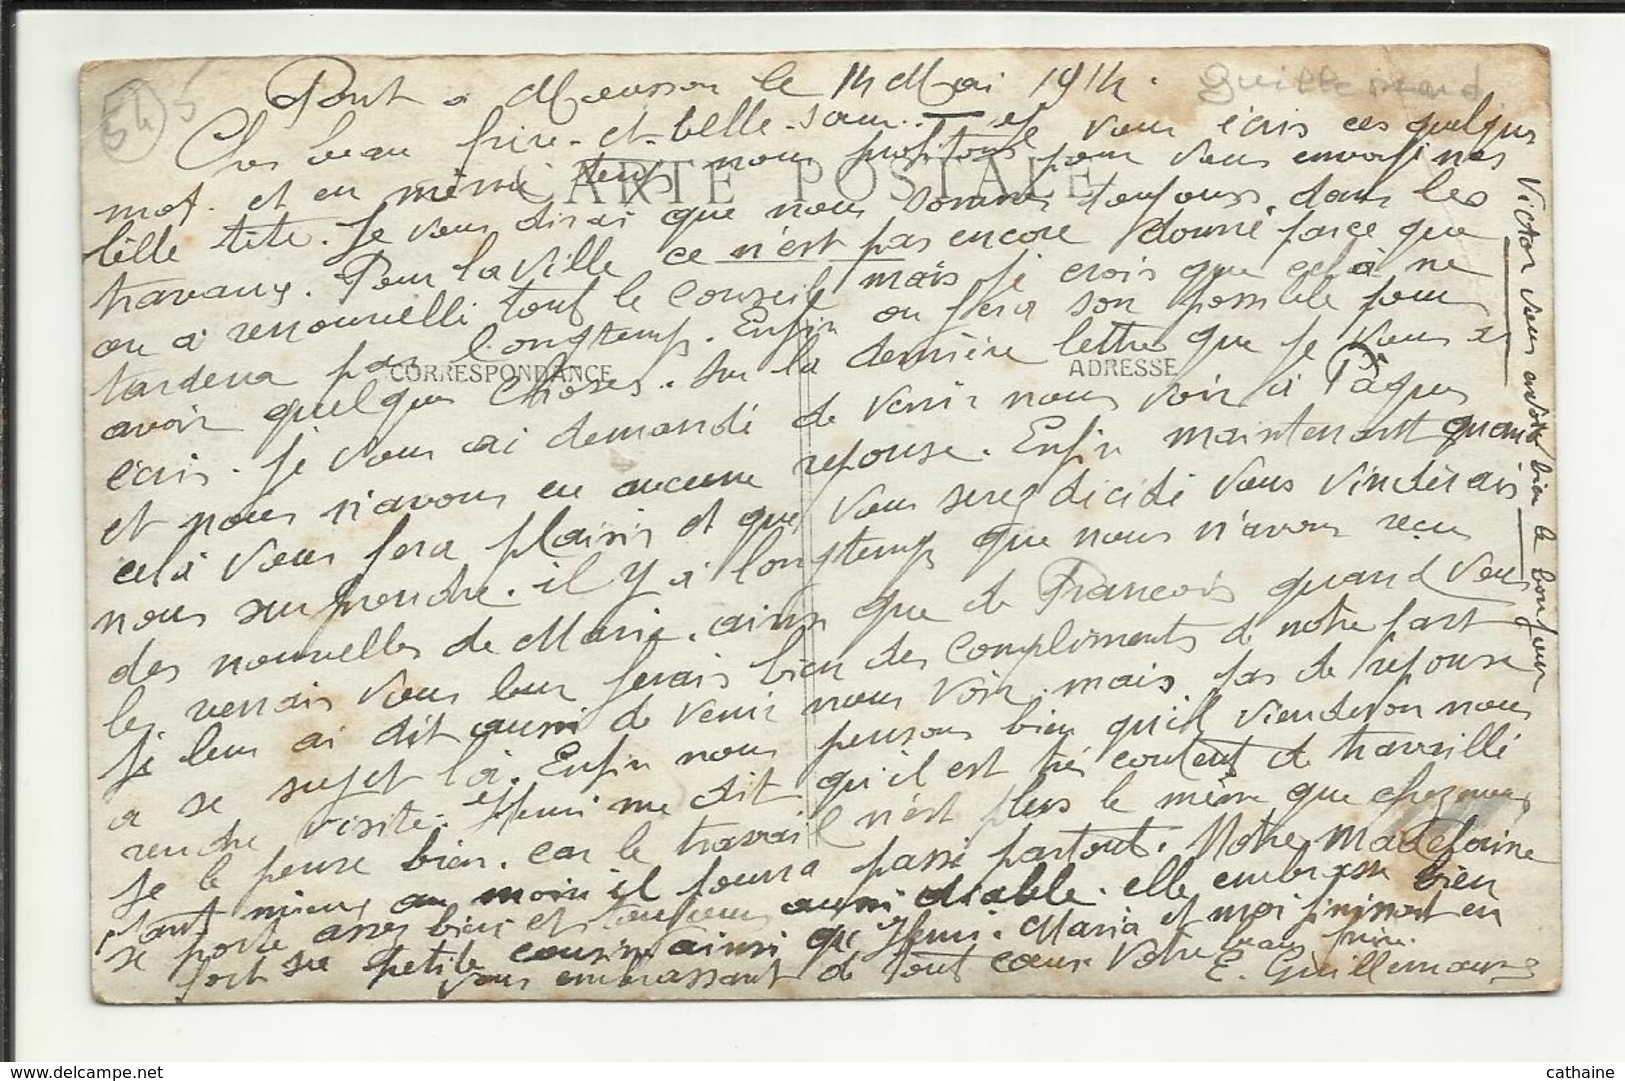 Pont à Mousson le 14 Mai 1914.
Guillemard.
54
5
Cher beau frère-et-belle-sœur. Je vous écris ces quelques
mot. et en même temps nous profitons pour vous envoyé nos
bélle tête. Je vous dirai que nous sommes toujours dans les
travaux. Pour la ville ce n'est pas encore donné parce que
on à renouvellé tout le Conseil mais je crois que celà ne
tardera pas longtemps. Enfin on fera son possible pour
avoir quelques choses. Sur la dernière lettre que je vous ai
écris. je vous ai demandé de venir nous voir à Pâques
et nous n'avons eu aucune reponse. Enfin maintenant quand
celà vous fera plaisir et que vous serez dicidé vous vinderais
nous surprendre. il y à longtemps que nous n'avons reçu
des nouvelles de Marie. ainsi que de Francois quand vous
les verrais vous leur ferais bien des compliments de notre part
je leur ai dit aussi de venir nous voir. mais pas de reponse
a se sujet là. Enfin nous pensons bien qu'il vienderon nous
rendre visite. Henri me dit qu'il est très content de travaillé
je le pense bien. car le travail n'est plus le même que chez nous
tant mieux au moins il pourra passé partout. Notre Madeleine
se porte assez bien et toujours aussi diable. elle embrasse bien
fort sa petite cousine ainsi que Henri. Maria et moi finissont en
vous embrassant de tout cœur Votre beau frère.
E. Guillemard
Victor vous envoie bien le bonjour
CARTE POSTALE
CORRESPONDANCE
ADRESSE
cathaine